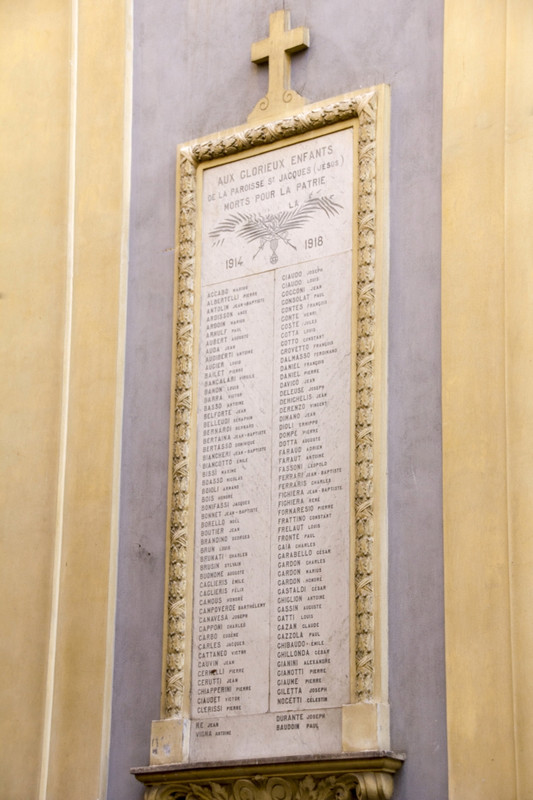 AUX GLORIEUX ENFANTS
DE LA PAROISSE ST JACQUES (JÉSUS)
MORTS POUR LA PATRIE
1914 1918
ACCABO MARIUS
ALBERTELLI PIERRE
ANTOLIN JEAN-BAPTISTE
ARDISSON ANGE
ARDOIN MARIUS
ARNULF PAUL
AUBERT AUGUSTE
AUDA JEAN
AUDIBERTI ANTOINE
AUDIER LOUIS
BAILET PIERRE
BANCALARI VIRGILE
BARON LOUIS
BARRA VICTOR
BASSO ANTOINE
BELFORTE JEAN
BELLEUDI SÉRAPHIN
BERNARDI BERNARD
BERTAINA JEAN-BAPTISTE
BERTASSO DOMINIQUE
BIANCHERI JEAN-BAPTISTE
BIANCOTTO EMILE
BISSI MAXIME
BOASSO NICOLAS
BOIGLI ARMAND
BOIS HONORÉ
BONIFASSI JACQUES
BONNET JEAN-BAPTISTE
BORELLO NOËL
BOUTIER JEAN
BRANDINO GEORGES
BRUN LOUIS
BRUNATI CHARLES
BRUSIN SYLVAIN
BUONOME AUGUSTE
CAGLIERIS ÉMILE
CAGLIERIS FÉLIX
CAMOUS HONORÉ
CAMPOVERDE BARTHÉLEMY
CANAVESA JOSEPH
CAPPONI CHARLES
CARBO EUGÈNE
CARLES JACQUES
CATTANEO VICTOR
CAUVIN JEAN
CERMELLI PIERRE
CERUTTI JEAN
CHIAPPERINI PIERRE
CIAUDET VICTOR
CLERISSI PIERRE
CIAUDO JOSEPH
CIAUDO LOUIS
COCCONI JEAN
CONSOLAT PAUL
CONTES FRANÇOIS
CONTE HENRI
COSTE JULES
COTTA LOUIS
COTTO CONSTANT
CROVETTO FRANÇOIS
DALMASSO FERDINAND
DANIEL FRANÇOIS
DANIEL PIERRE
DAVICO JEAN
DELEUSE JOSEPH
DEMICHELIS JEAN
DERENZO VINCENT
DINAND JEAN
DIOLI PHILIPPE
DOMPÉ PIERRE
DOTTA AUGUSTE
FARAUD ADRIEN
FARAUT ANTOINE
FASSONI LÉOPOLD
FERRARI JEAN-BAPTISTE
FERRARIS CHARLES
FIGHIERA JEAN-BAPTISTE
FIGHIERA RENÉ
FORNARESIO PIERRE
FRATTINO CONSTANT
FRELAUT LOUIS
FRONTE PAUL
GAIA CHARLES
GARABELLO CÉSAR
GARDON CHARLES
GARDON MARIUS
GARDON HONORÉ
GASTALDI CÉSAR
GHIGLION ANTOINE
GASSIN AUGUSTE
GATTI LOUIS
GAZAN CLAUDE
GAZZOLA PAUL
GHIBAUDO ÉMILE
GHILLONDA CÉSAR
GIANINI ALEXANDRE
GIANOTTI PIERRE
GIAUME PIERRE
GILETTA JOSEPH
NOCETTI CÉLESTIN
RÉ JEAN
VIGNA ANTOINE
DURANTE JOSEPH
BAUDOIN PAUL